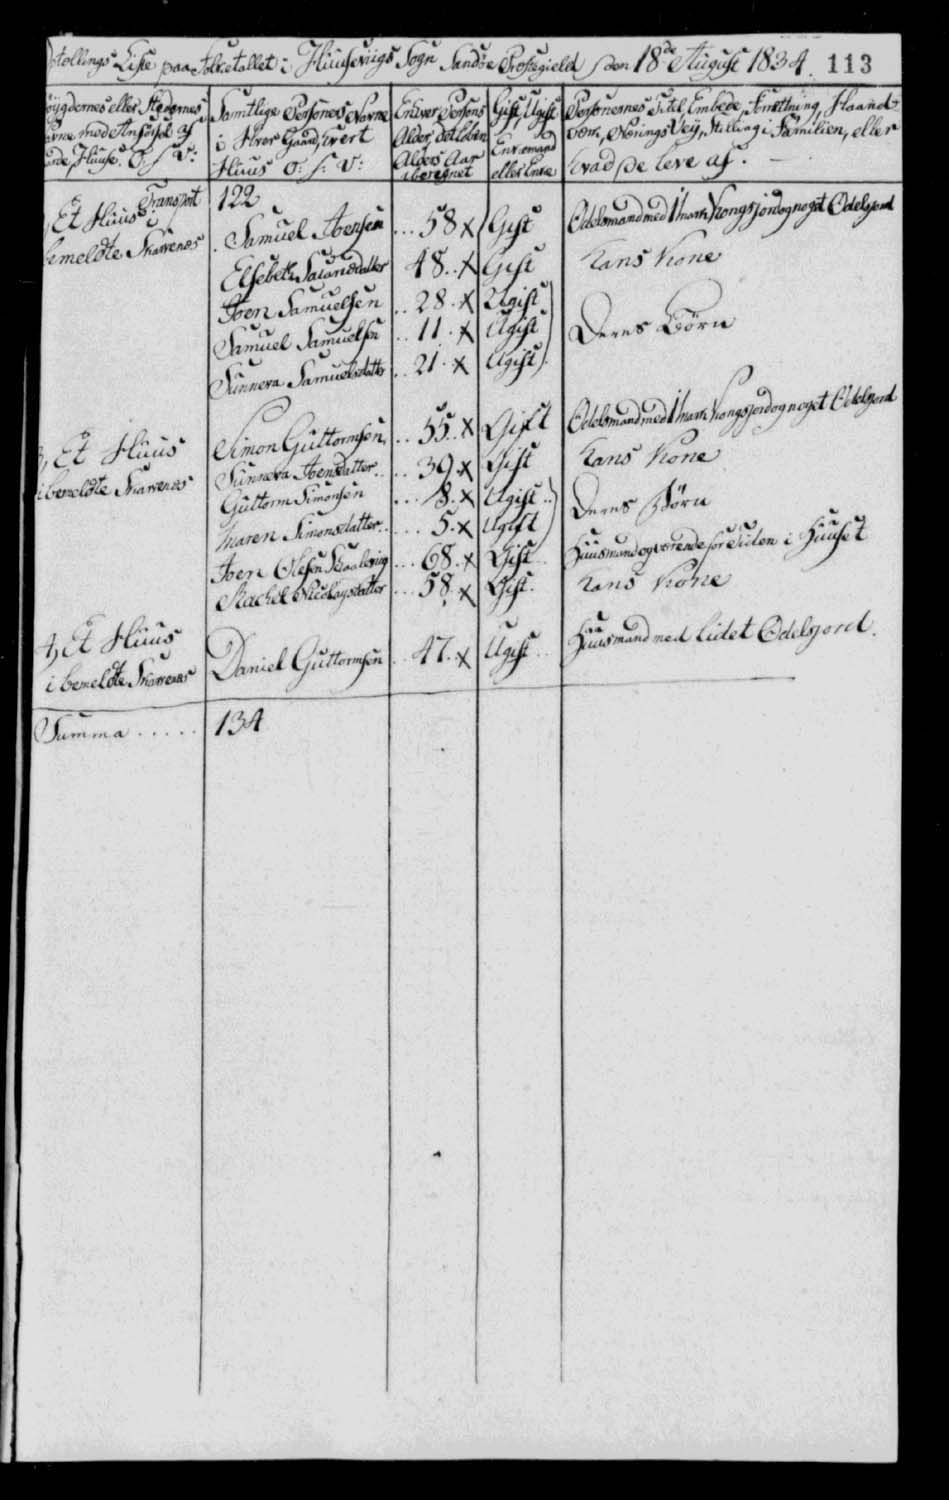 tællings Liste paa Folketallet i Huusevigs Sogn Sandøe Præstegield den 18de August 1834. 113
Bøygdernes eller Stedernes Navne med Anførsel af Gaarde, Huuse. O: s: V:
Samtlige Personers Navne i Hver Gaard, hvert Huus O: s: V:
Enhver Persons Alder, det løbende Alders Aar iberegnet
Gift, Ugift Enkemand eller Enke
Personernes Titel, Embede, Forretning, Haandværk, Nærings Vej, Stilling i Familien, eller hvad de leve af.
Transport 122
Et Huus i bemeldte Skarvenæs
Samuel Joensen ... 58 x Gift Odelsmand med 1 mark Kongsjord og noget Odelsjord
Elsebeth datter 48 .. x Gift Hans Kone
Joen Samuelsen .. 28 . x Ugift
Samuel Samuelsen .. 11 . x Ugift Deres Börn
Sunneva Samuelsdatter .. 21 . x Ugift
3, Et Huus i bemeldte Skarvenæs
Simon Guttormsen, .. 55 .. x Gift Odelsmand med 1 mark Kongsjord og noget Odelsjord
Sunneva Joensdatter .. ... 39 x Gift Hans Kone
Guttorm Simonsen ... 8 . x Ugift ..
Maren Simonsdatter .. ... 5 . x Ugift Deres Börn
Joen Olesen Skaaleviig ... 68 . x Gift .. Huusmand og værende for Tiden i Huuset
Rachel Nicolaysdatter ... 58 . x Gift. Hans Kone
4, Et Huus i bemeldte Skarvenæs
Daniel Guttormsen .. 47 . x Ugift .. Huusmand med lidet Odelsjord.
Summa ..... 134